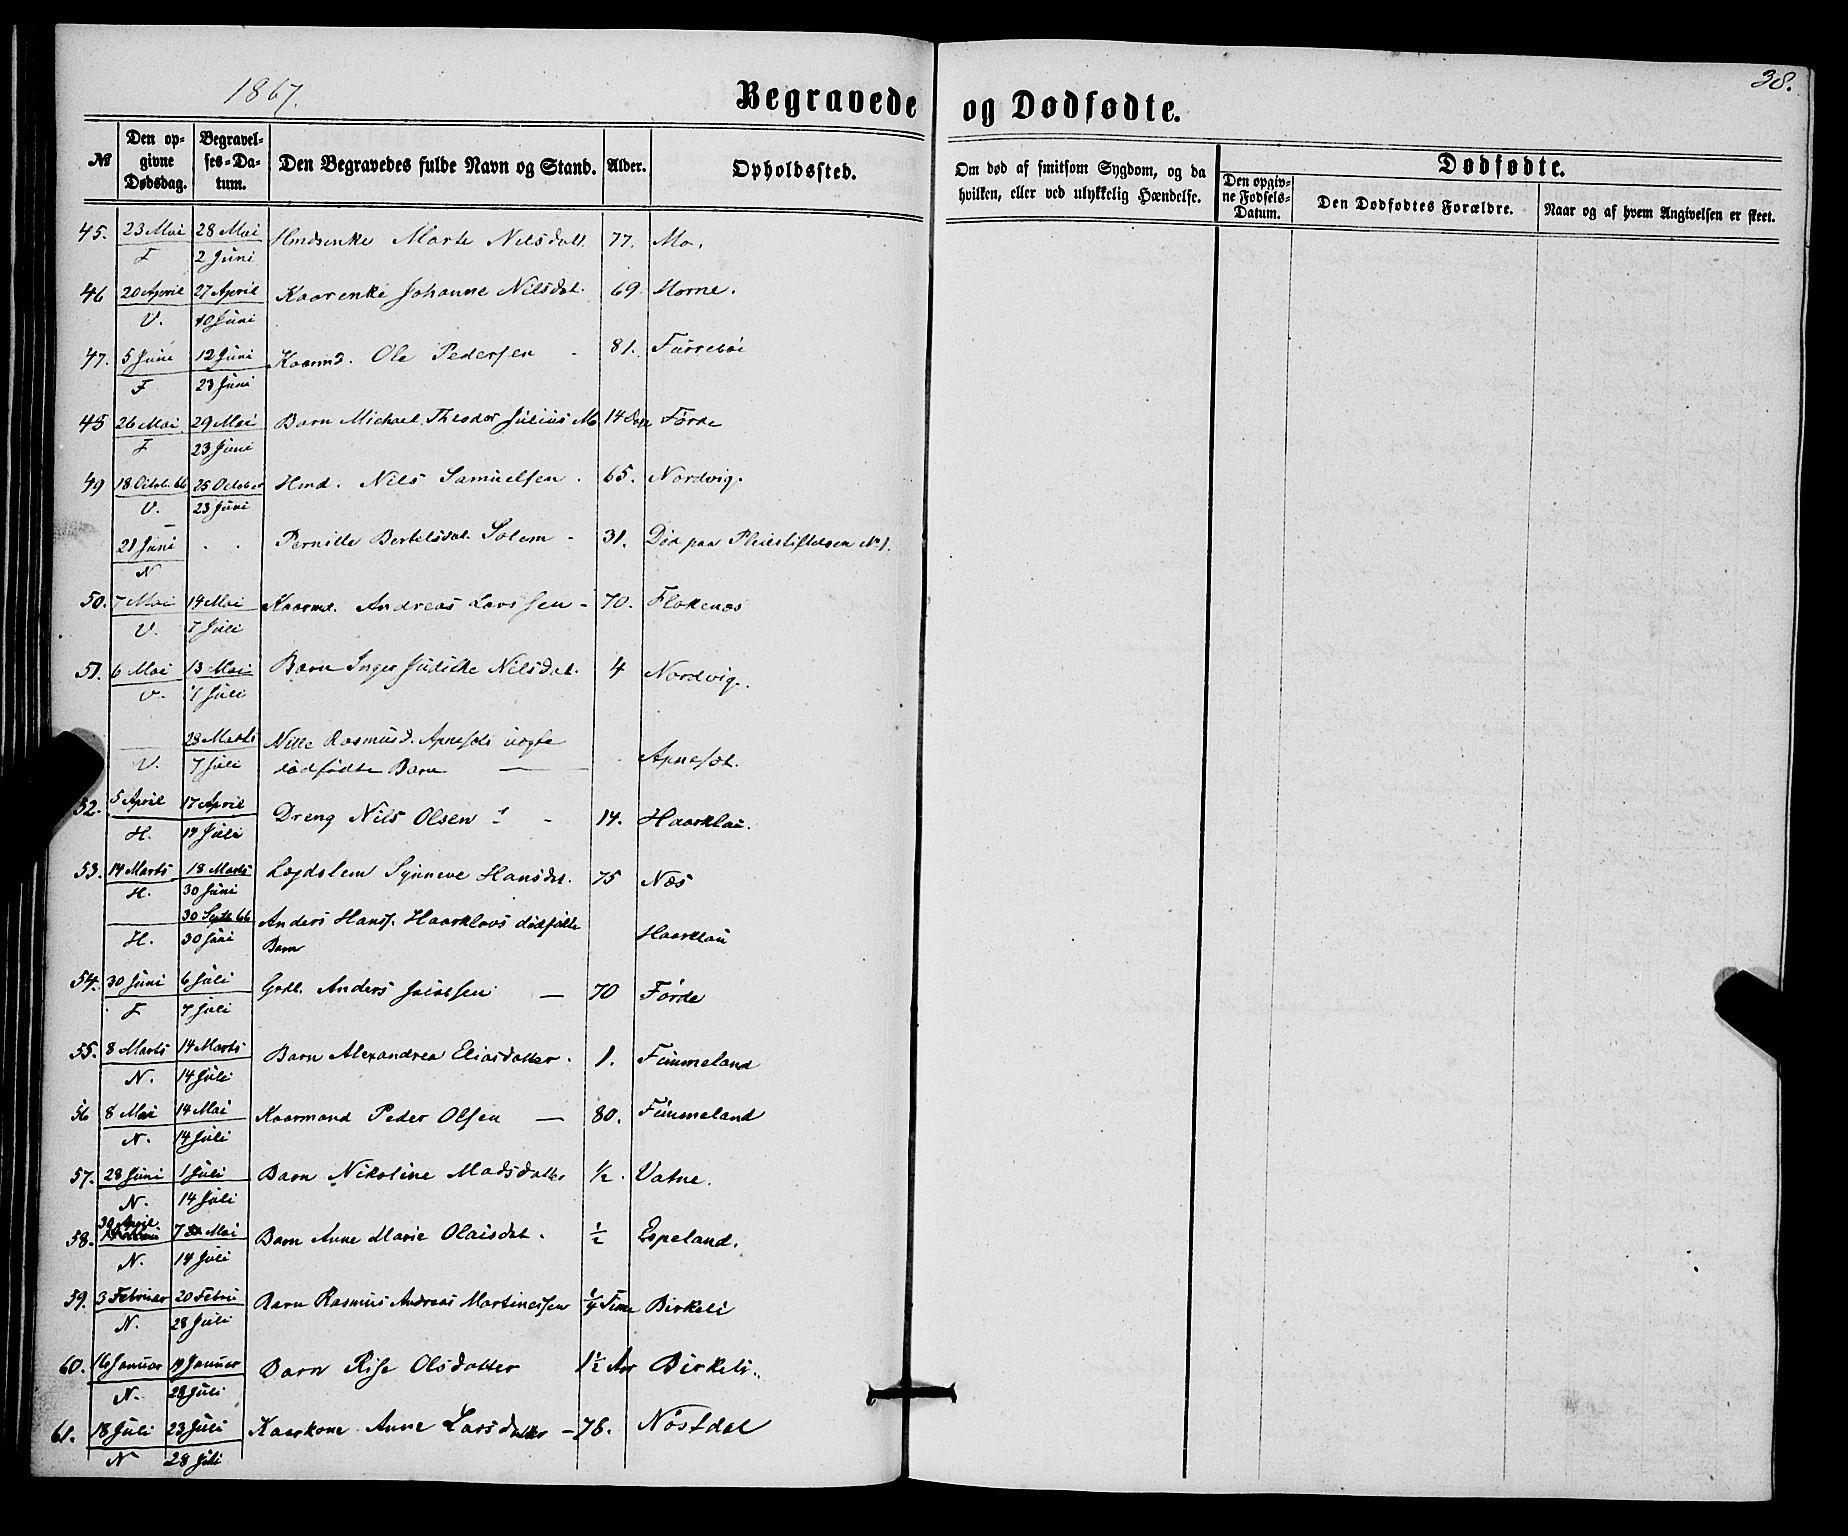 1867.
38.
Begravede og Dødfødte.
№
Den opgivne Dødsdag.
Begravelses-Datum.
Den Begravedes fulde Navn og Stand.
Alder.
Opholdssted.
Om død af smitsom Sygdom, og da hvilken, eller ved ulykkelig Hændelse.
Dødfødte.
Den opgivne Fødsels-Datum.
Den Dødfødtes Forældre.
Naar og af hvem Angivelsen er skeet.
45. 23 Mai 28 Mai Marte Nilsdatt. 77. Mo.
F 2 Juni
46 20 April 27 April Kaarenke Johanne Nilsdat. 69. Horne.
V. 10 Juni
47. 5 Juni 12 Juni Kaarmd. Ole Pedersen - 81. Furrebøi
F 23 Juni
45 26 Mai 29 Mai Barn Michael Theodor Julius M 14 Dage Førde
F 23 Juni
49 18 Octob. 66 25 October Hmd. Nils Samuelsen. 65. Nordvig.
V. 23 Juni
21 Juni . . Pernille Bertelsdat. Solem - 31. Død paa Pleiestiftelsen № 1.
N
50. 7 Mai 14 Mai Kaarmd. Andreas Larssen - 70. Flokenæs
V. 7 Juli
51. 6 Mai 13 Mai Barn Inger Judithe Nilsdat. 4 Nordvig.
V. 7 Juli
28 Marts Nille Rasmusd. Apnesets uægte
V. 7 Juli dødfødte Barn — Apneset.
52. 5 April 17 April Dreng Nils Olsen - 14. Haarklau.
H. 14 Juli
53. 14 Marts 18 Marts Lægdslem Synneve Hansdat. 75 Næs
H. 30 Juni
30 Septb 66 Anders Hans. Haarklavs dødfødte
H. 30 Juni Barn Haarklau
54. 30 Juni 6 Juli Anders 70 Førde
F 7 Juli
55. 8 Marts 14 Marts Barn Alexandrea Eliasdatter. 1. Fimmeland
N. 14 Juli
56 8 Mai 14 Mai Kaarmand Peder Olsen — 80. Fimmeland
N. 14 Juli
57. 28 Juni 1 Juli Barn Nikoline Madsdatter ½. Vatne.
N. 14 Juli
58. 30 April 7 Mai Barn Anne Marie Olaisdat. ½ Espeland.
N. 14 Juli
59. 3 Februar 20 Febru Barn Rasmus Andreas Martinessen ¼ Time Birkeli
N. 28 Juli
60. 16 Januar 19 Januar Barn Rise Olsdatter 1½ Aar Birkeli.
N. 28 Juli
61. 18 Juli 23 Juli Kaarkone Anne Larsdatter - 76. Nöstdal
N 28 Juli